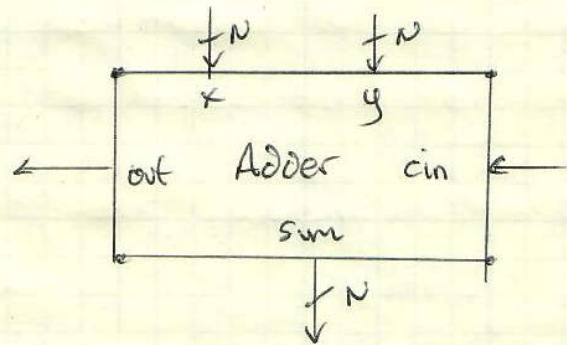 N N
x y
out Adder cin
sum
N